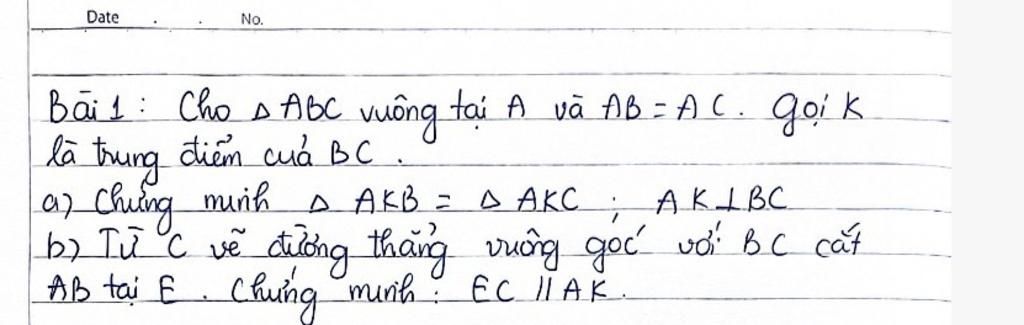 Date . . No.
Bài 1 : Cho Δ ABC vuông tại A và AB = AC. Gọi K
là trung điểm của BC .
a) Chứng minh Δ AKB = Δ AKC ; AK ⊥ BC
b) Từ C vẽ đường thẳng vuông góc với BC cắt
AB tại E . Chứng minh : EC // AK .